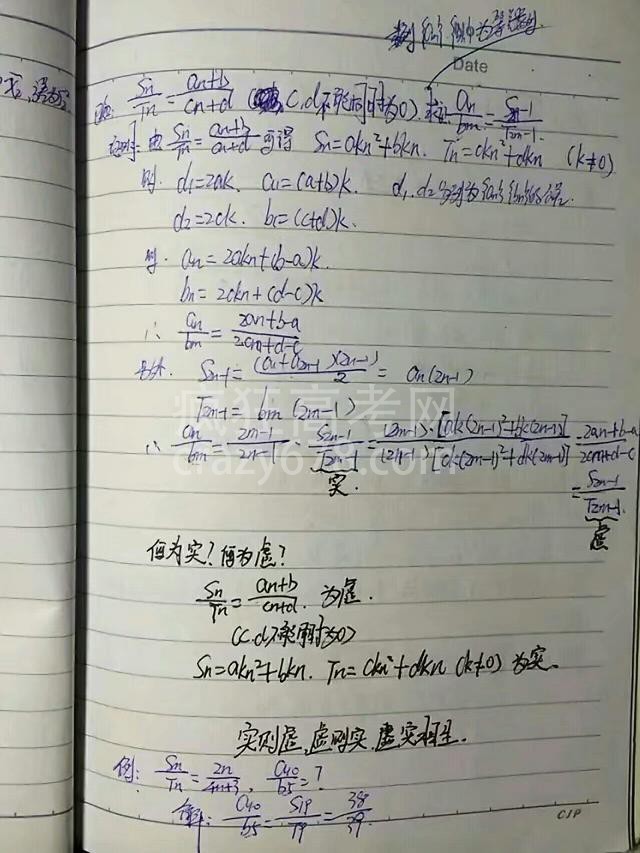 数列{an}{bn}为等差数列
Date
题: Sn/Tn = (an+b)/(cn+d) (c,d不能同时为0) 求证 an/bm = S2n-1/T2m-1.
证明: 由 Sn/Tn = (an+b)/(cn+d) 可得 Sn=akn²+bkn. Tn=ckn²+dkn (k≠0)
则. d1=2ak. a1=(a+b)k. d1.d2分别为{an}{bn}的公差.
d2=2ck. b1=(c+d)k.
则. an=2akn+(b-a)k.
bn=2ckn+(d-c)k
∴ an/bm = (2an+b-a)/(2cm+d-c)
另外. S2n-1 = (a1+a2n-1)(2n-1)/2 = an(2n-1)
T2m-1 = bm(2m-1)
疯狂高考网
crazy
∴ an/bm = (2m-1)/(2n-1) · S2n-1/T2m-1 = (2m-1)·[ak(2n-1)²+bk(2n-1)]/(2n-1)[ck(2m-1)²+dk(2m-1)] = (2an+b-a)/(2cm+d-c)
实.
= S2n-1/T2m-1.
虚
何为实?何为虚?
Sn/Tn = (an+b)/(cn+d). 为虚.
(c.d不能同时为0)
Sn=akn²+bkn. Tn=ckn²+dkn (k≠0) 为实.
实则虚,虚则实.虚实相生.
例: Sn/Tn = 2n/(4n+3), a10/b5=?
解: a10/b5 = S19/T9 = 38/39.
C1P